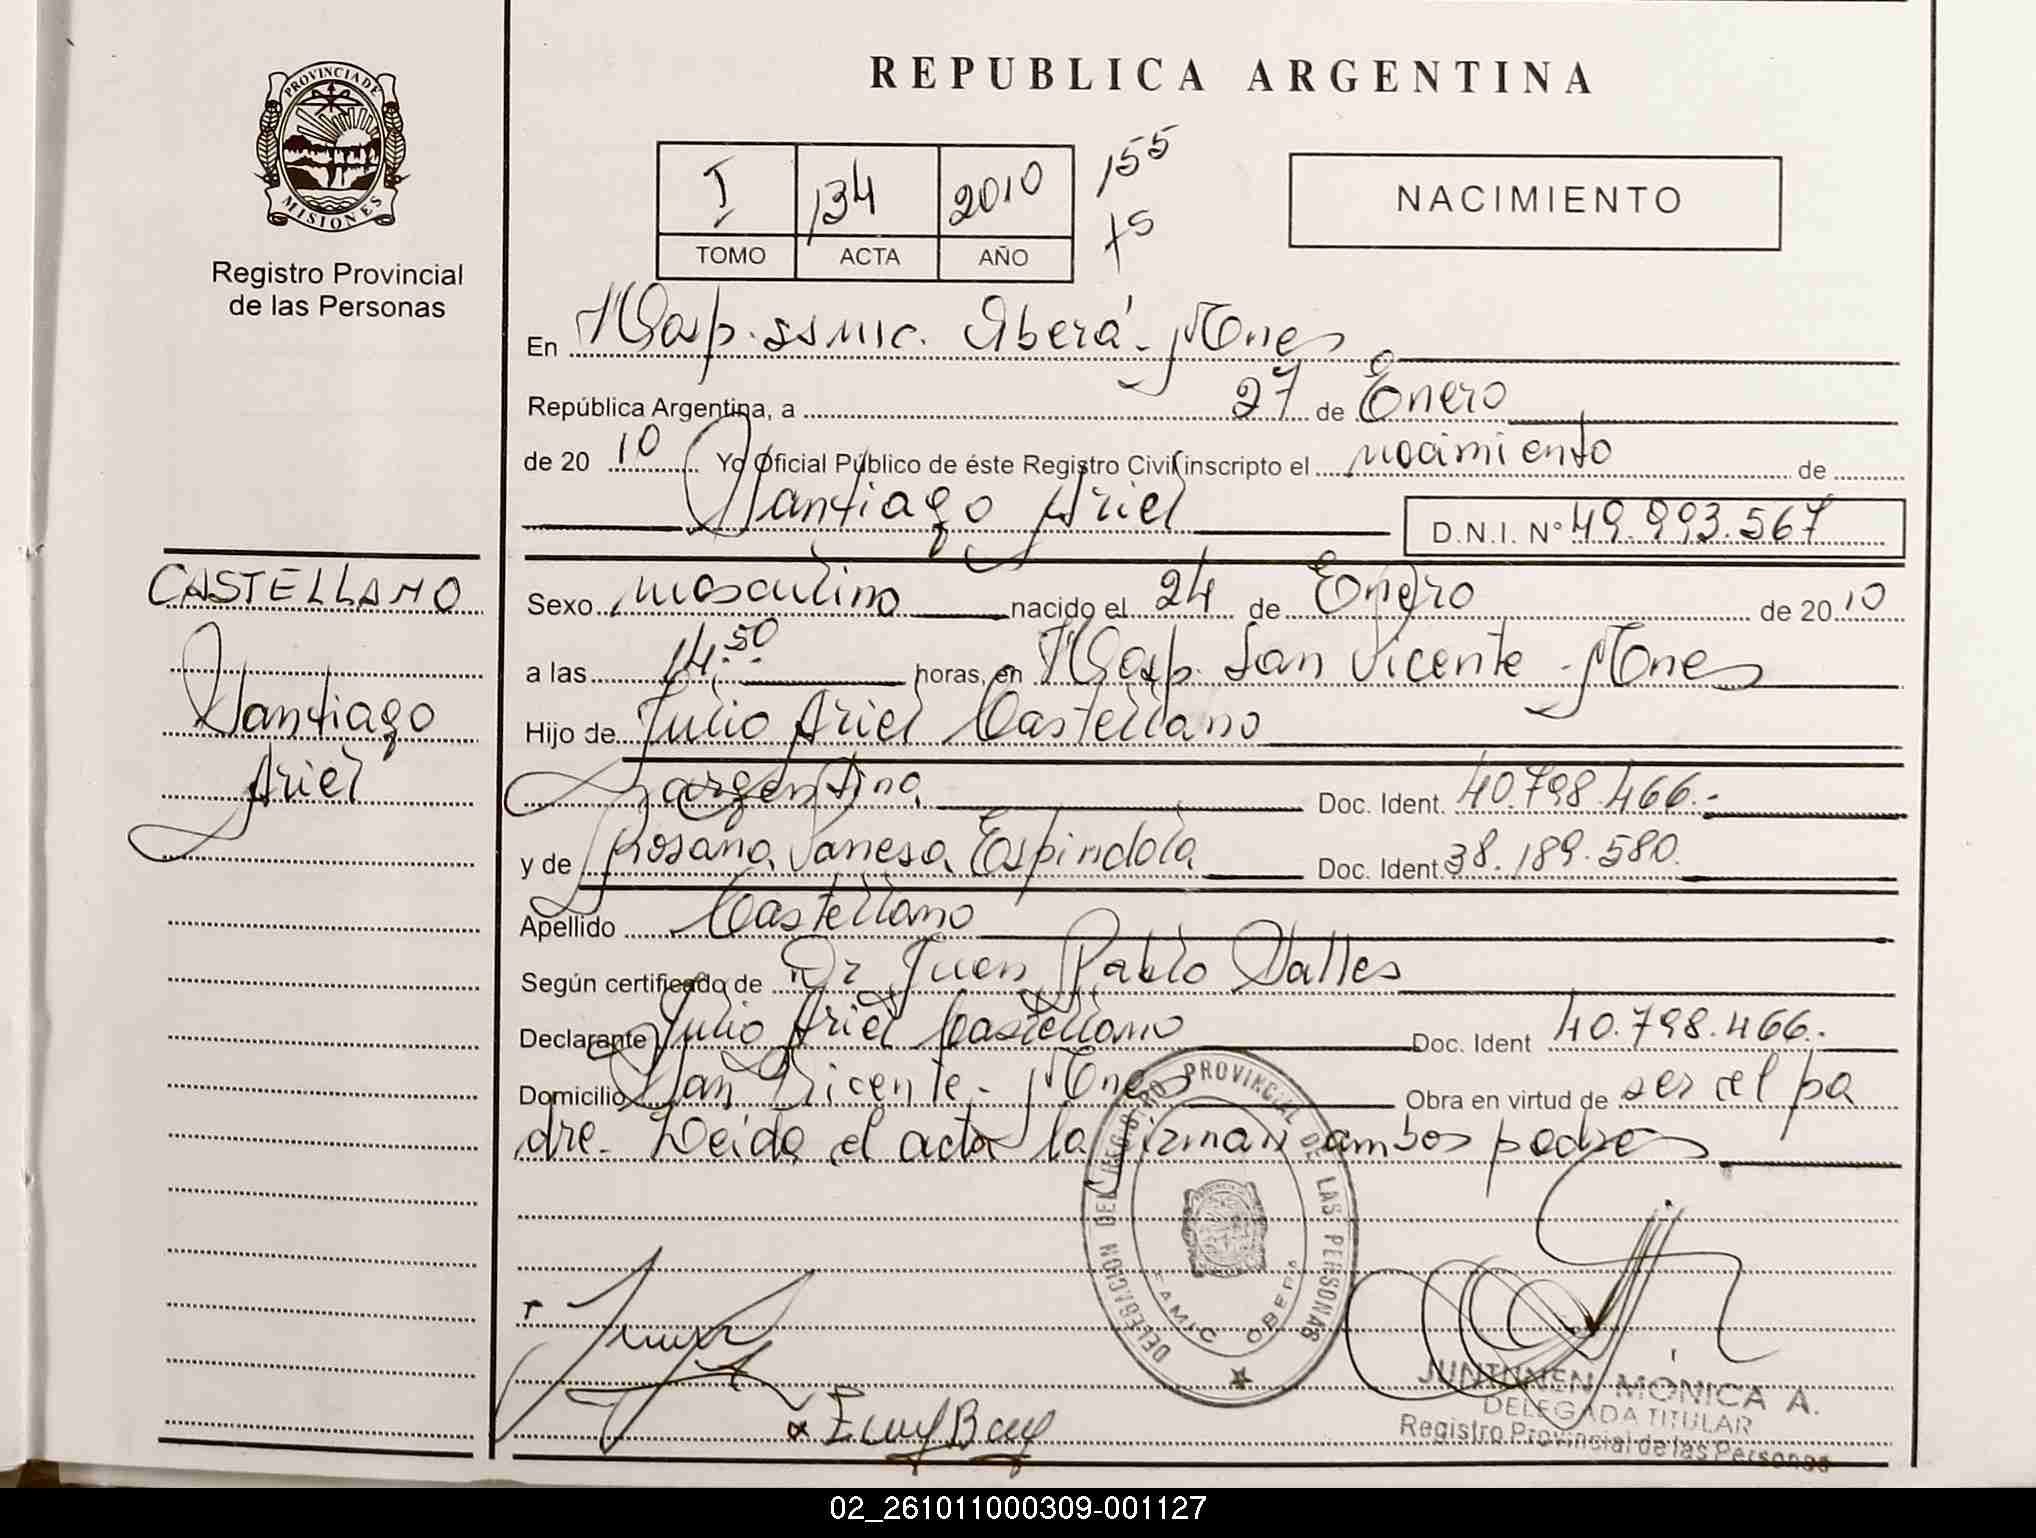 PROVINCIA DE
MISIONES
Registro Provincial
de las Personas
REPUBLICA ARGENTINA
I 134 2010
TOMO ACTA AÑO
155
75
NACIMIENTO
En Hosp. SS MIC. Oberá - Mnes
República Argentina, a 27 de Enero
de 2010 Yo Oficial Público de éste Registro Civil inscripto el nacimiento de
Santiago Ariel D.N.I. Nº 49.993.567
CASTELLANO
Santiago
Ariel
Sexo masculino nacido el 24 de Enero de 2010
a las 14:50 horas, en Hosp. San Vicente - Mnes
Hijo de Julio Ariel Castellano
argentino Doc. Ident. 40.798.466.-
y de Rosana Vanesa Espindola Doc. Ident. 38.189.580.
Apellido Castellano
Según certificado de Dr Juan Pablo Salles
Declarante Julio Ariel Castellano Doc. Ident 40.798.466.-
Domicilio San Vicente - Mnes Obra en virtud de ser el pa
dre. Leida el acta la firman ambos padres
DELEGACION DEL REGISTRO PROVINCIAL DE LAS PERSONAS
OBERA
MONICA A.
DELEGADA TITULAR
Registro Provincial de las Personas
02_261011000309-001127